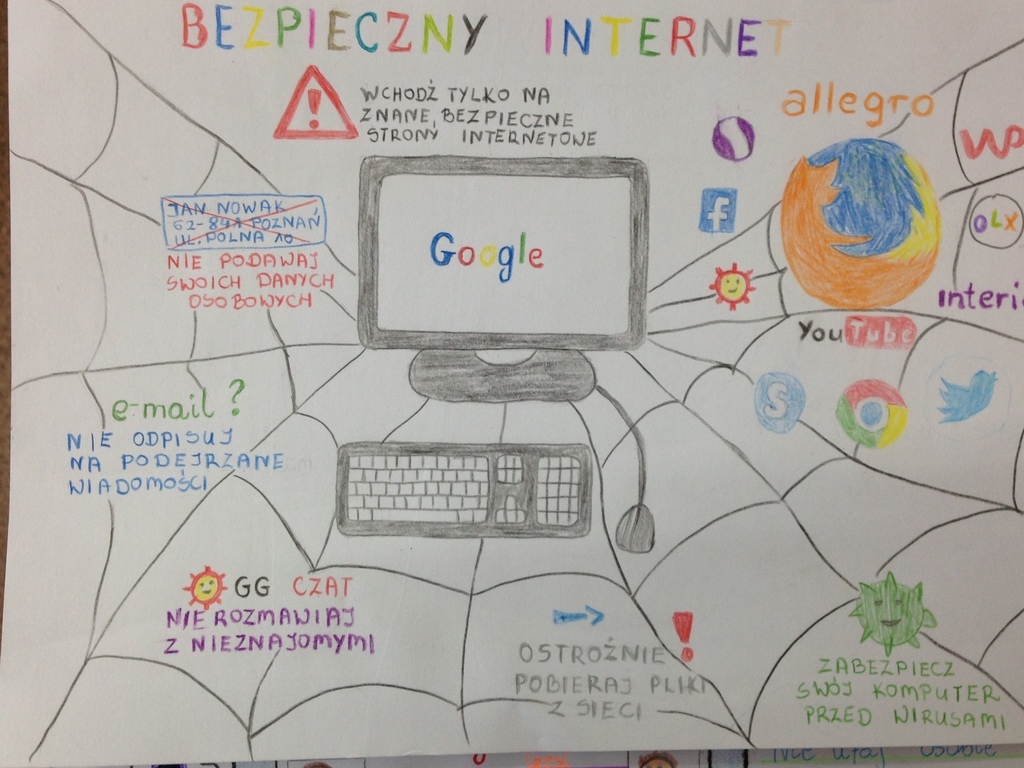 BEZPIECZNY INTERNET
WCHODŹ TYLKO NA
ZNANE, BEZPIECZNE
STRONY INTERNETOWE
allegro
WP
f
OLX
JAN NOWAK
62-841 POZNAŃ
UL. POLNA 10
NIE PODAWAJ
SWOICH DANYCH
OSOBOWYCH
Google
interi
YouTube
S
e-mail ?
NIE ODPISUJ
NA PODEJRZANE
WIADOMOŚCI
GG CZAT
NIE ROZMAWIAJ
Z NIEZNAJOMYMI
OSTROŻNIE !
POBIERAJ PLIKI
Z SIECI
ZABEZPIECZ
SWÓJ KOMPUTER
PRZED WIRUSAMI